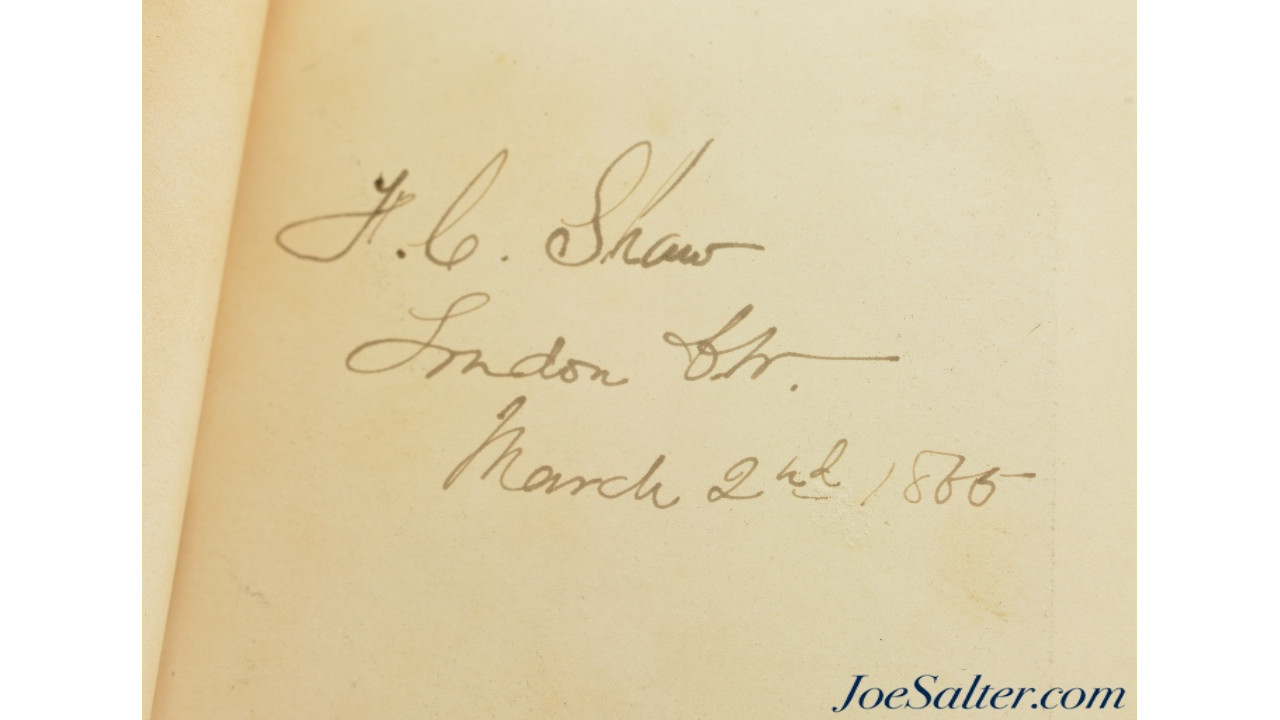 F. C. Shaw
London
March 2nd 186
JoeSalter.com